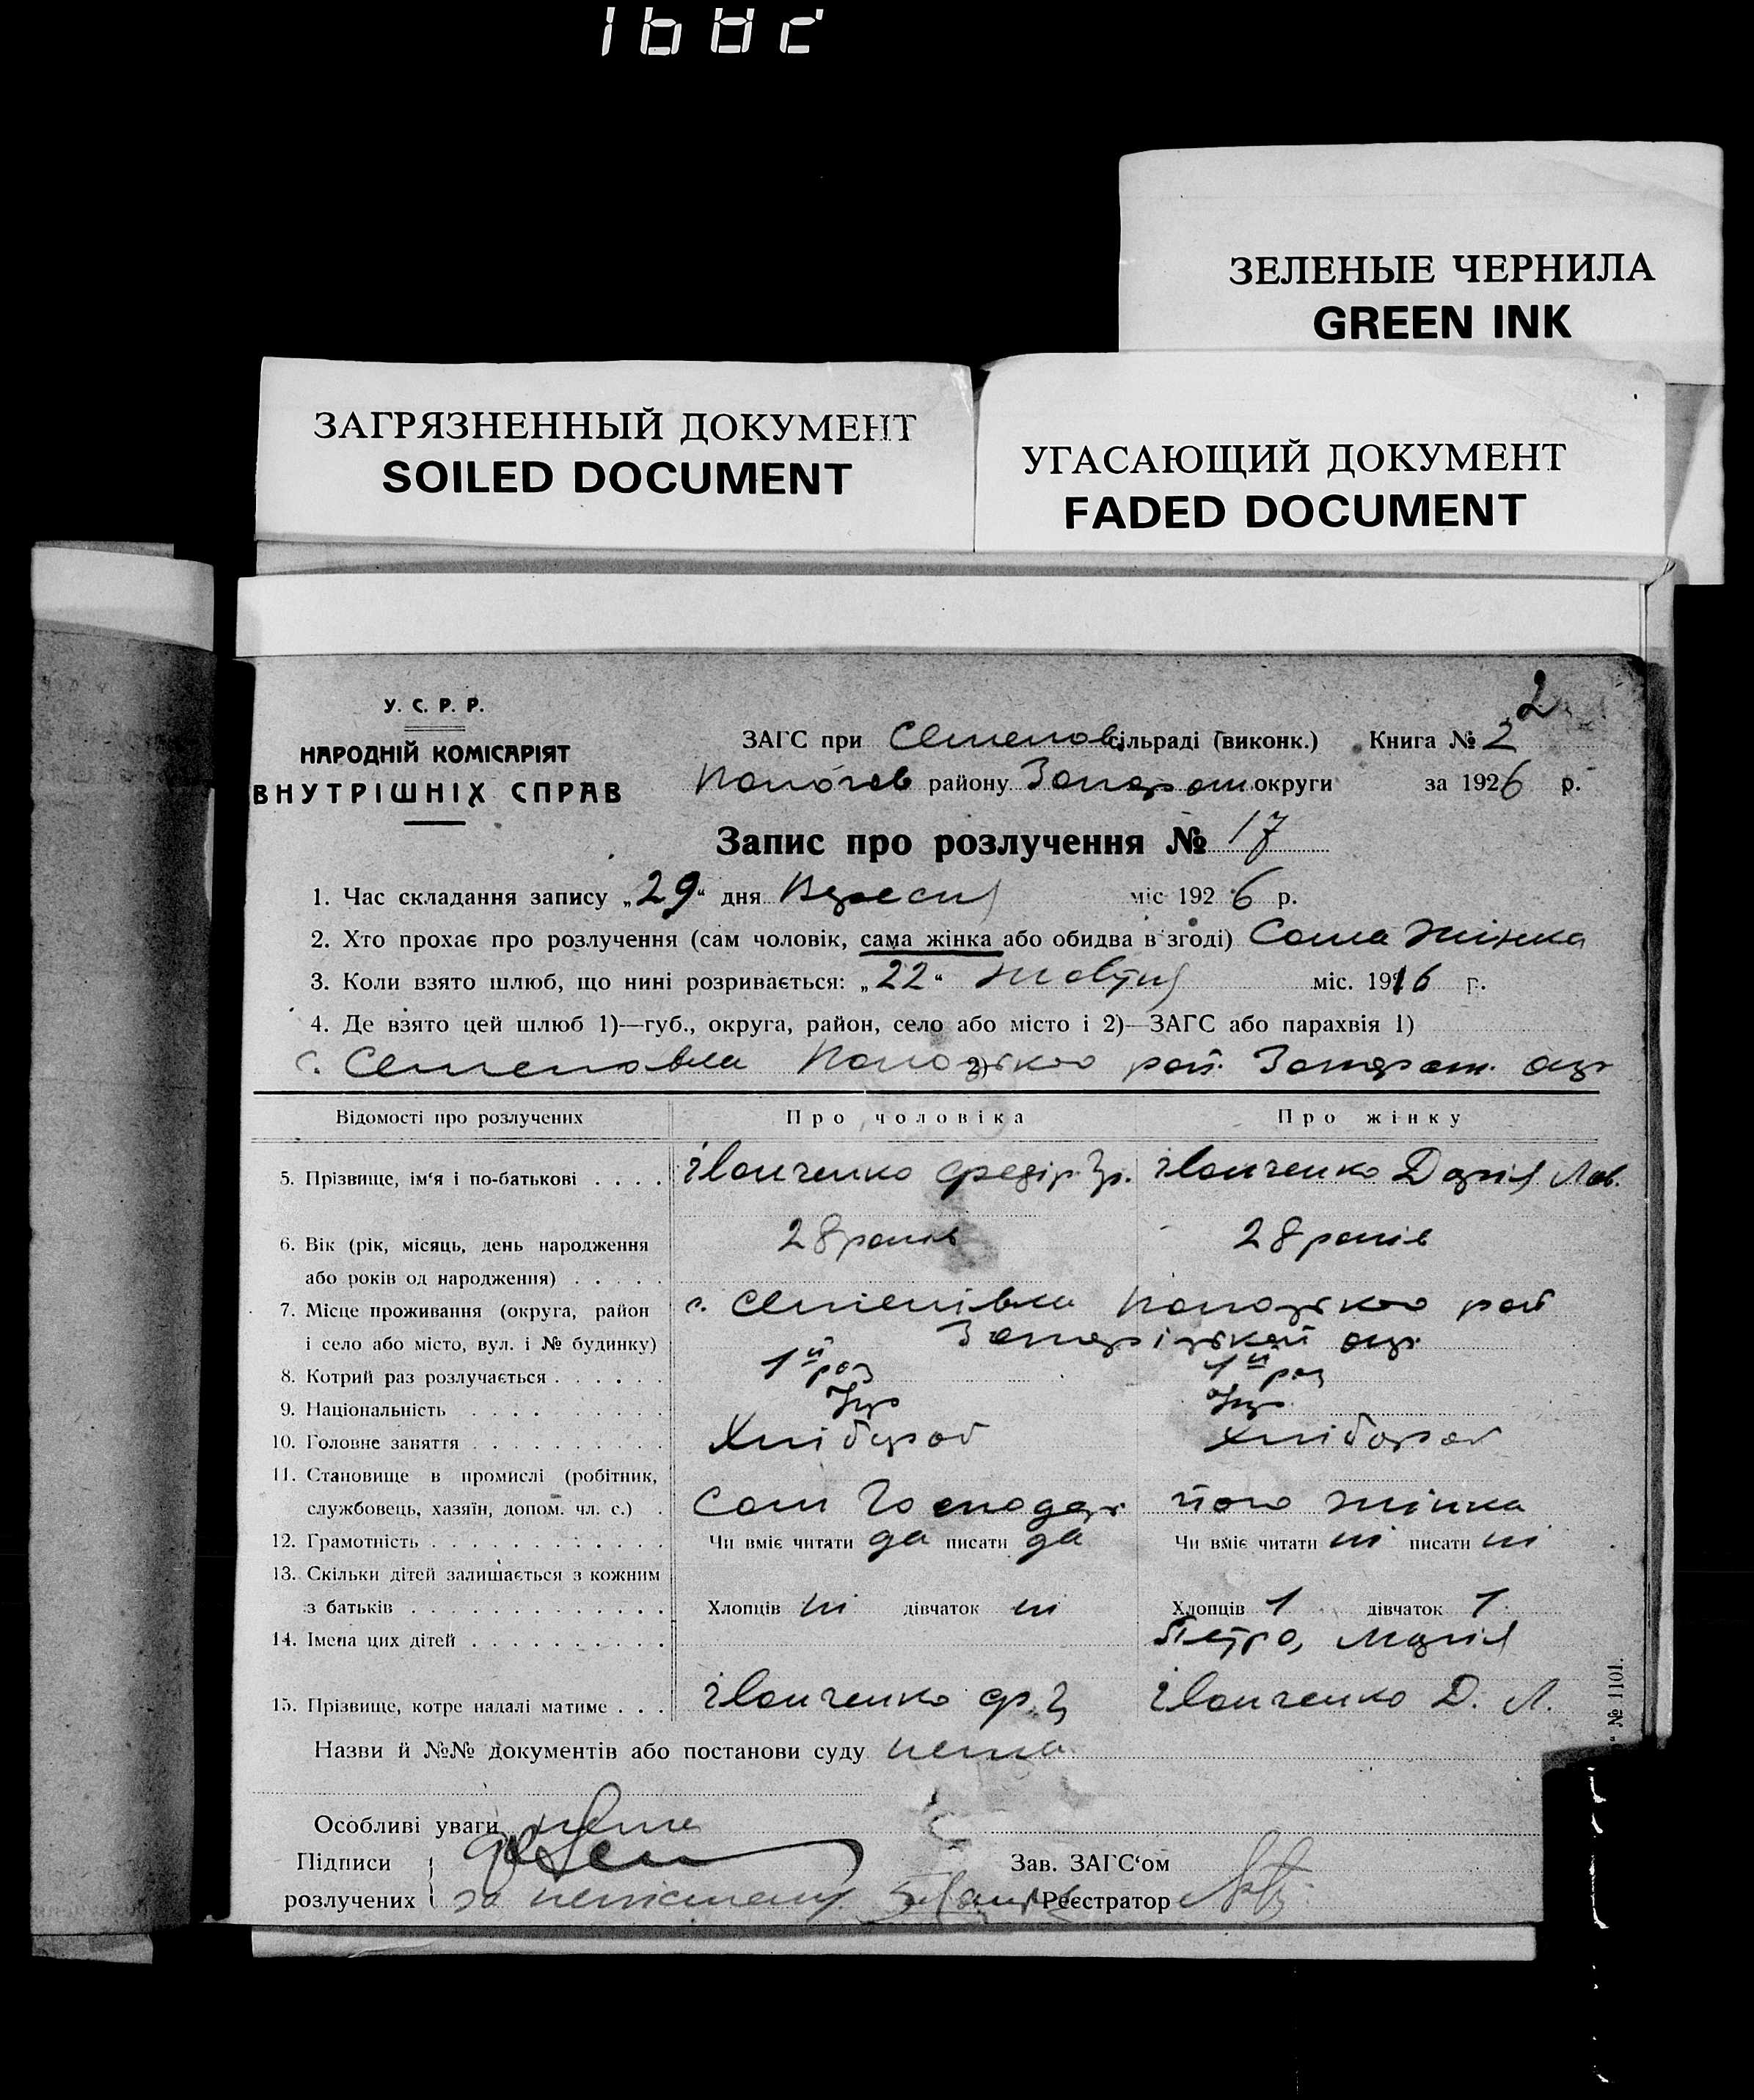 1682
ЗЕЛЕНЫЕ ЧЕРНИЛА
GREEN INK
ЗАГРЯЗНЕННЫЙ ДОКУМЕНТ
SOILED DOCUMENT
УГАСАЮЩИЙ ДОКУМЕНТ
FADED DOCUMENT
2
У. С. Р. Р.
НАРОДНІЙ КОМІСАРІЯТ
ВНУТРІШНІХ СПРАВ
ЗАГС при Семенов сільраді (виконк.) Книга № 2
району Запорож округи за 1926 р.
Запис про розлучення № 17
1. Час складання запису „29“ дня Вересня міс 1926 р.
2. Хто прохає про розлучення (сам чоловік, сама жінка або обидва в згоді) Сама жінка
3. Коли взято шлюб, що нині розривається: „22“ жовтня міс. 1916 г.
4. Де взято цей шлюб 1)—губ., округа, район, село або місто і 2)—ЗАГС або парахвія 1)
с. Семеновка 2) рай. Запорож. окр
Відомості про розлучених Про чоловіка Про жінку
5. Прізвище, ім‘я і по-батькові . . . . Іванченко Федір Гр. Іванченко Дарія Лав.
6. Вік (рік, місяць, день народження 28 років 28 років
або років од народження) . . . . .
7. Місце проживання (округа, район с. Семенівка рай
і село або місто, вул. і № будинку) Запорізькой окр.
8. Котрий раз розлучається . . . . . . 1й раз 1й раз
9. Національність . . . . . . . . . Укр Укр.
10. Головне заняття . . . . . . . . . . Хлібороб Хлібороб
11. Становище в промислі (робітник,
службовець, хазяїн, допом. чл. с.) . Сам Господарь його жінка
12. Грамотність . . . . . . . . . . . . Чи вміє читати да писати да Чи вміє читати ні писати ні
13. Скільки дітей залишається з кожним
з батьків . . . . . . . . . . . . . Хлопців ні дівчаток ні Хлопців 1 дівчаток 1
14. Імена цих дітей . . . . . . . . . . Петро, Марія
15. Прізвище, котре надалі матиме . . . Іванченко Ф. Г Іванченко Д. Л.
Назви й №№ документів або постанови суду нема
Особливі уваги нема
Підписи Зав. ЗАГС‘ом
розлучених за неписмену Реєстратор
№ 1101.